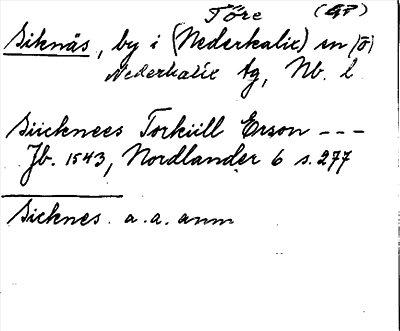 Töre (GP)
Siknäs, by i (Nederkalix) sn (ö)
Nederkalix tg, Nb. l.
Siicknees Torkiill Erson ---
Jb. 1543, Nordlander 6 s. 277
Sicknes. a. a. anm